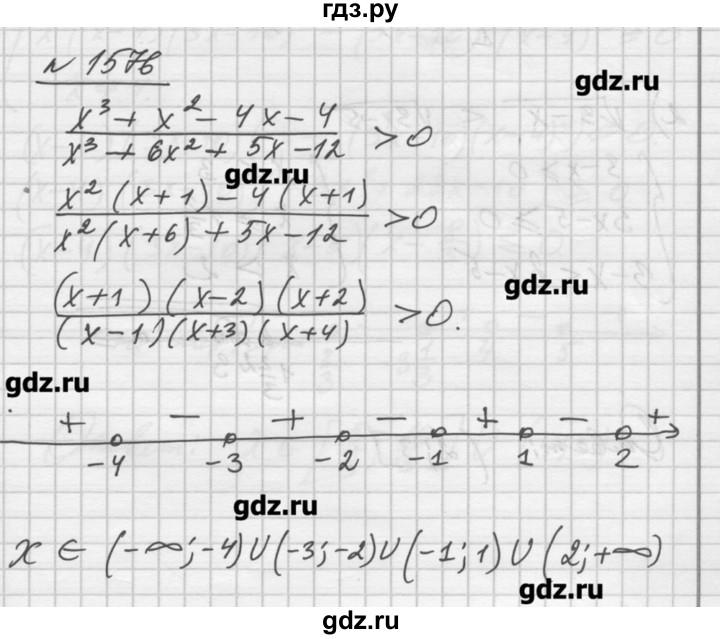 гдз.ру
№ 1576
gdz.ru
x³ + x² - 4x - 4
x³ + 6x² + 5x - 12 > 0
gdz.ru
x² (x + 1) - 4 (x + 1)
x² (x + 6) + 5x - 12 > 0
gdz.ru
(x + 1) (x - 2) (x + 2)
(x - 1) (x + 3) (x + 4) > 0.
gdz.ru
+ - + - + - +
-4 -3 -2 -1 1 2
gdz.ru
x ∈ (-∞; -4) ∪ (-3; -2) ∪ (-1; 1) ∪ (2; +∞)
gdz.ru
gdz.ru